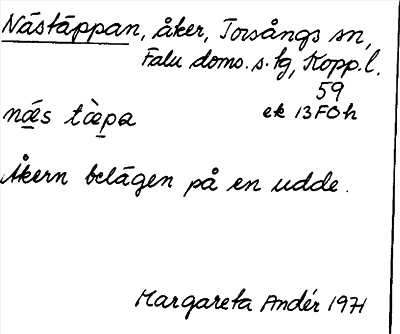 Nästäppan, åker, Torsångs sn,
Falu doms. s. tg, Kopp. l.
59
nä̱s tὰp̱a ek 13F0h
Åkern belägen på en udde.
Margareta Andér 1971